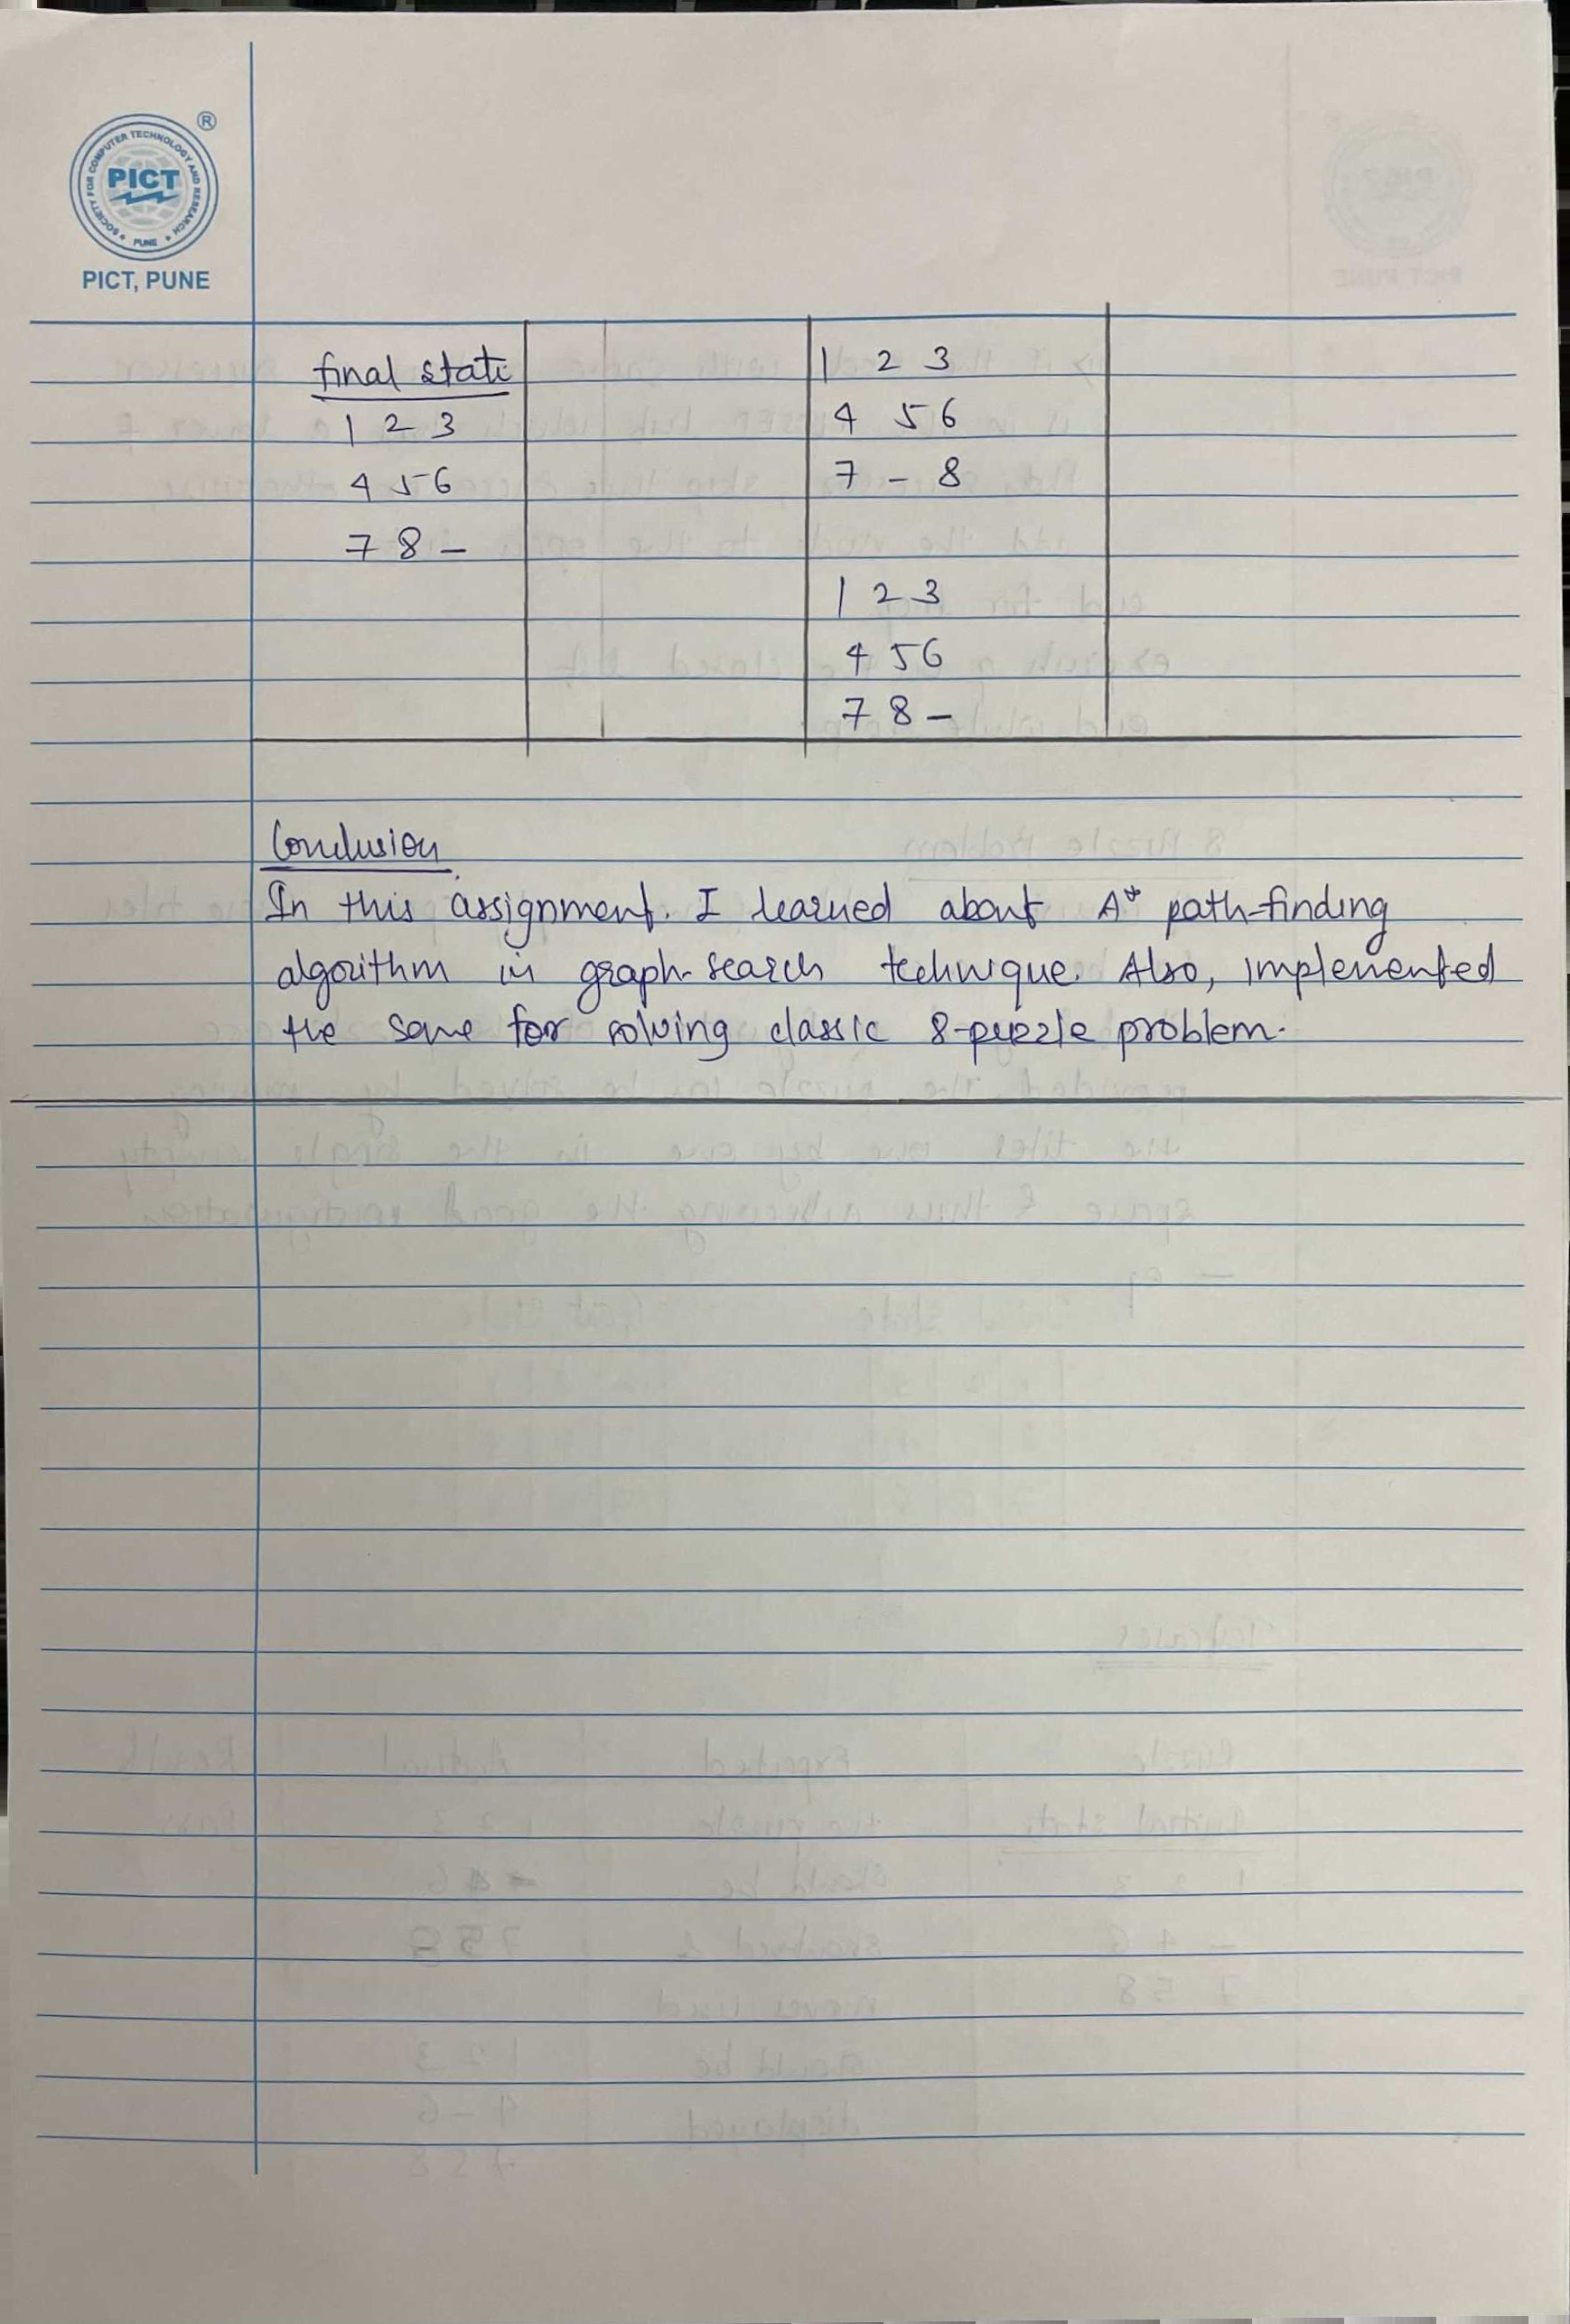 SOCIETY FOR COMPUTER TECHNOLOGY AND RESEARCH
PUNE
PICT
®
PICT, PUNE
final state
1 2 3
4 5 6
7 8 -
1 2 3
4 5 6
7 - 8
1 2 3
4 5 6
7 8 -
Conclusion
In this assignment. I learned about A* path-finding
algorithm in graph-search technique. Also, implemented
the same for solving classic 8-puzzle problem.